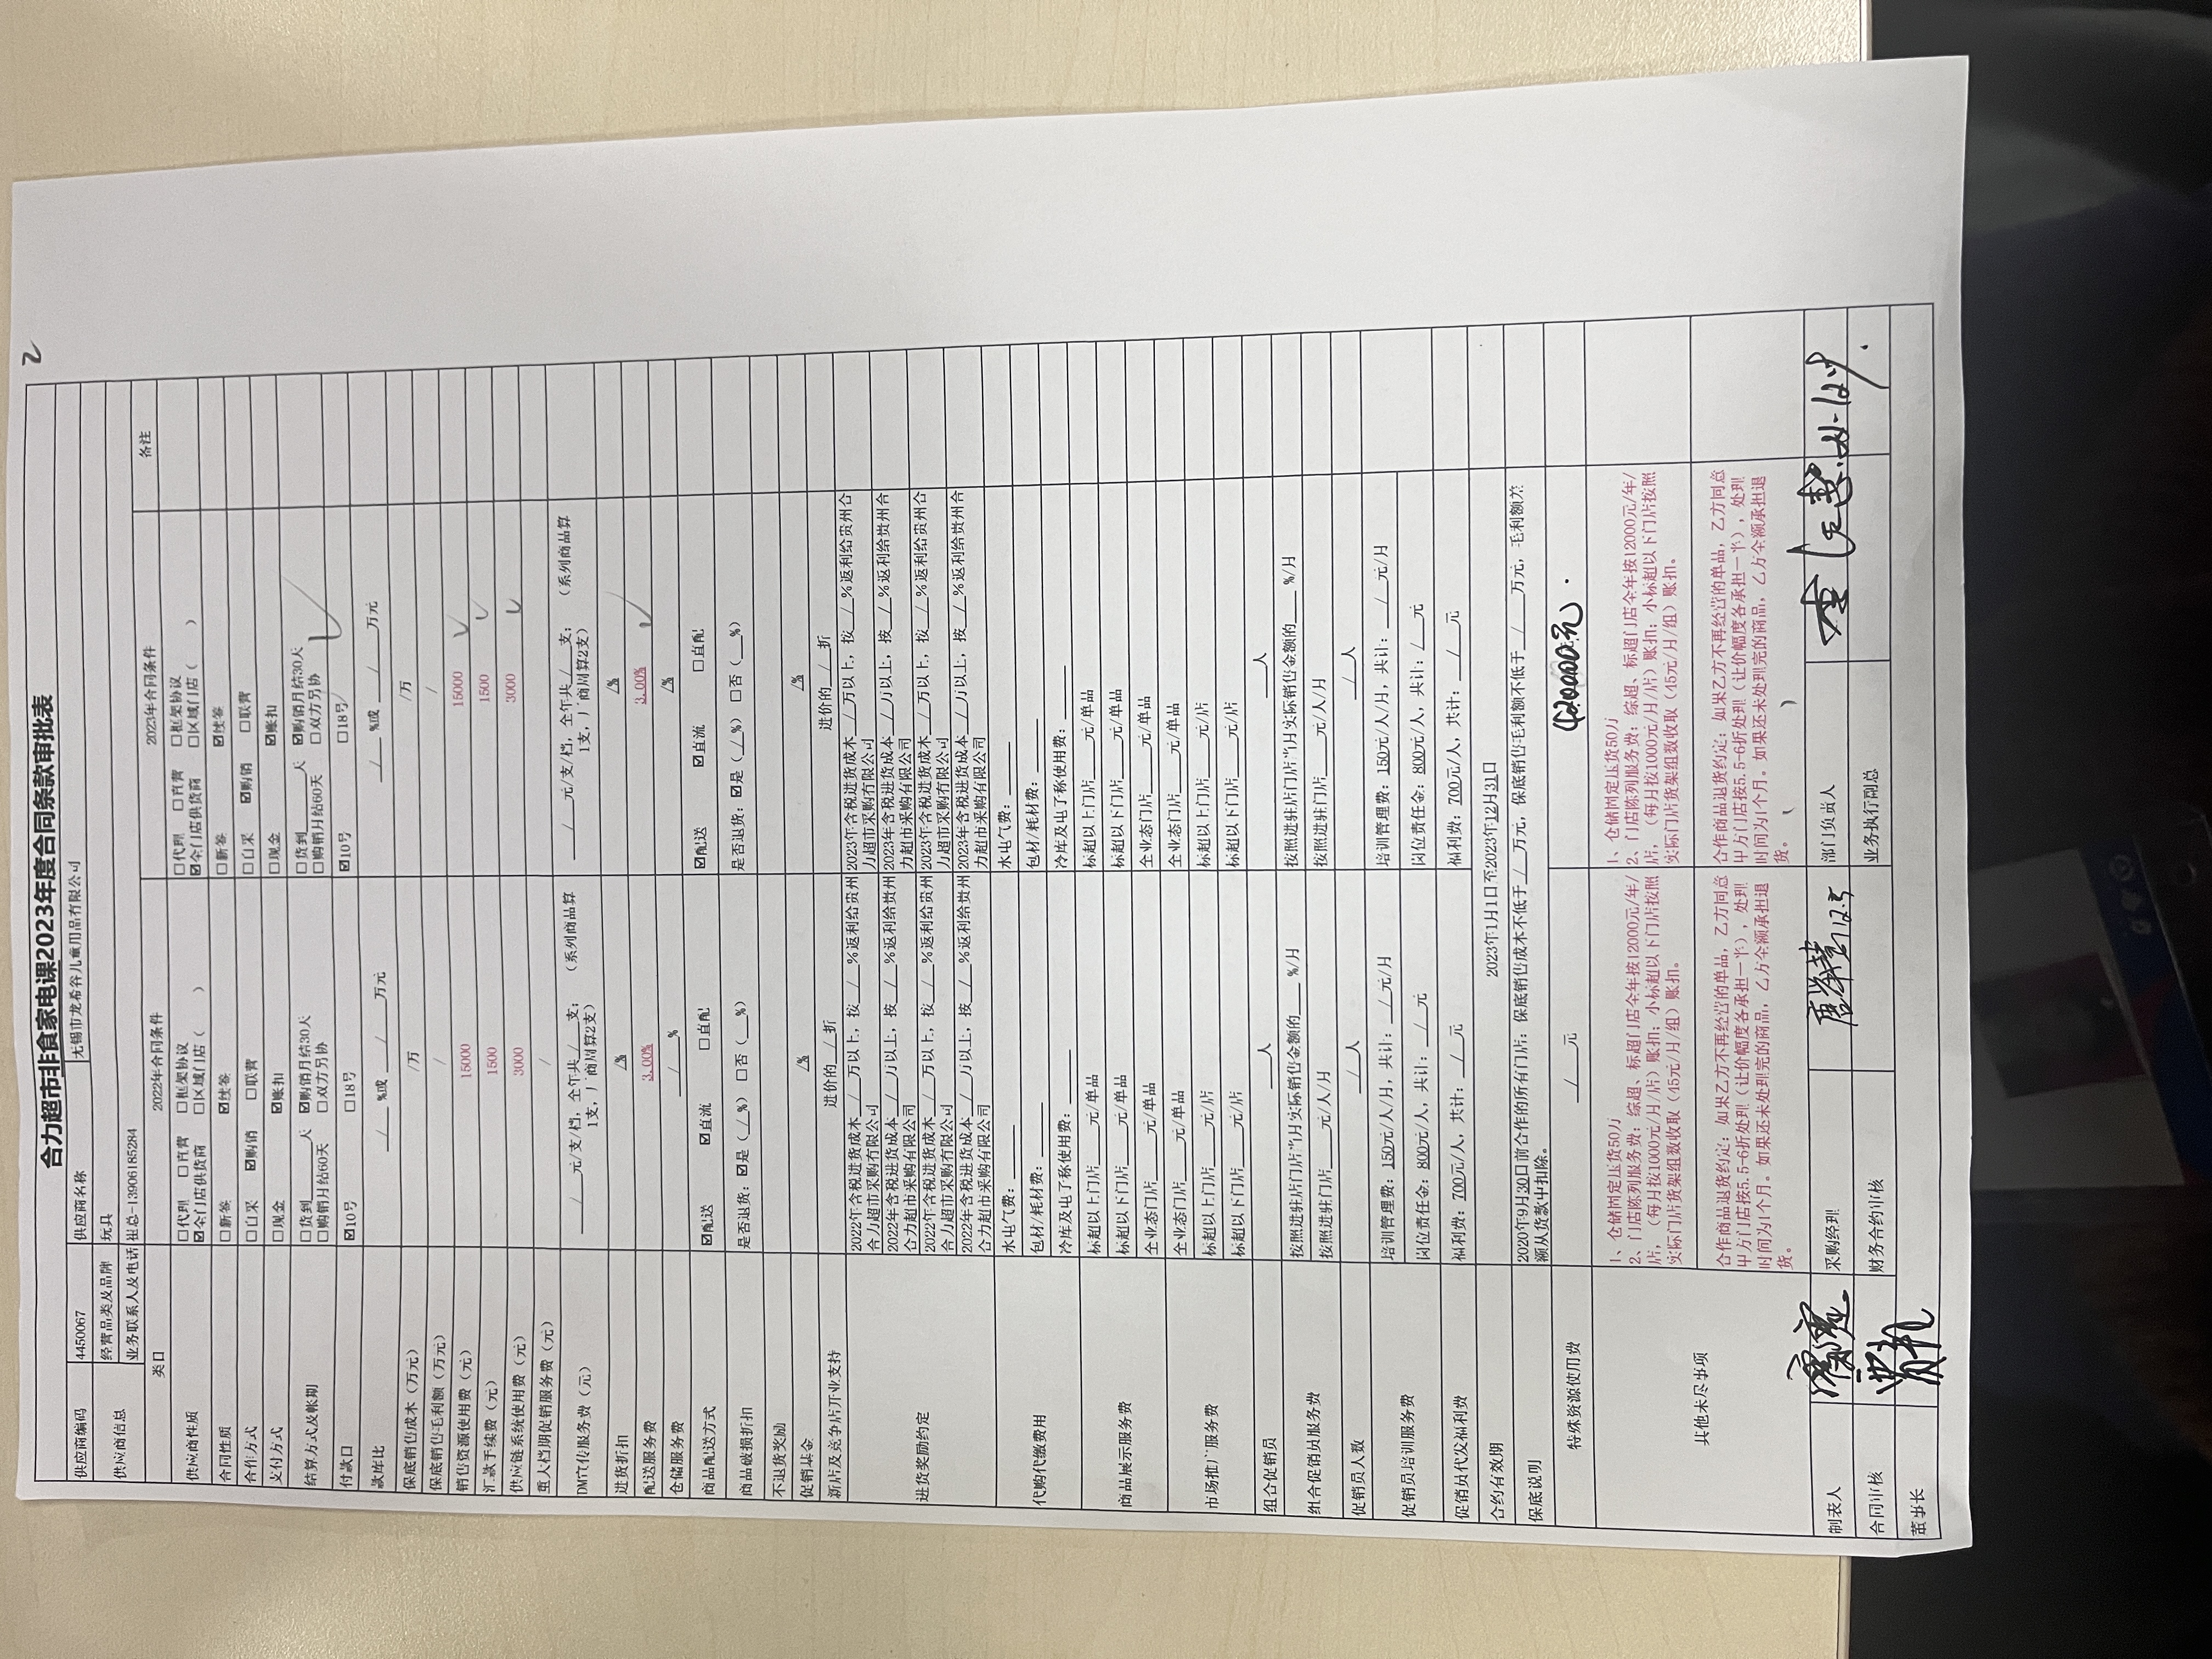 2
合力超市非食家电课2023年度合同条款审批表
供应商编码 4450067 供应商名称 无锡市龙希谷儿童用品有限公司
供应商信息 经营品类及品牌 玩具
业务联系人及电话 13906185284
类目 2022年合同条件 2023年合同条件 备注
供应商性质 □代理 □直营 □框架协议 □代理 □直营 □框架协议
☑全门店供货商 □区域门店（ ） ☑全门店供货商 □区域门店（ ）
合同性质 □新签 ☑续签 □新签 ☑续签
合作方式 □自采 ☑购销 □联营 □自采 ☑购销 □联营
支付方式 □现金 ☑账扣 □现金 ☑账扣
结算方式及帐期 □货到___天 ☑购销月结30天 □货到___天 ☑购销月结30天
□购销月结60天 □双方另协 □购销月结60天 □双方另协
付款日 ☑10号 □18号 ☑10号 □18号
款库比 _/_ %或 _/_ 万元 _/_ %或 _/_ 万元
保底销售成本（万元） /万 /万
保底销售毛利额（万元） / /
销售资源使用费（元） 15000 15000
汇款手续费（元） 1500 1500
供应链系统使用费（元） 3000 3000
重大档期促销服务费（元） /
DM宣传服务费（元） _/_元/支/档，全年共_/_支； （系列商品算 _/_元/支/档，全年共_/_支； （系列商品算
1支，厂商周算2支） 1支，厂商周算2支）
进货折扣 /% /%
配送服务费 3.00% 3.00%
仓储服务费 _/_% /%
商品配送方式 ☑配送 ☑直流 □直配 ☑配送 ☑直流 □直配
商品破损折扣 是否退货：☑是（_/_%）□否（__%） 是否退货：☑是（_/_%）□否（__%）
不退货奖励
促销基金 /% /%
新店及竞争店开业支持 进价的_/_折 进价的_/_折
进货奖励约定 2022年含税进货成本_/_万以上，按_/_%返利给贵州 2023年含税进货成本_/_万以上，按_/_%返利给贵州合
合力超市采购有限公司 力超市采购有限公司
2022年含税进货成本_/_万以上，按_/_%返利给贵州 2023年含税进货成本_/_万以上，按_/_%返利给贵州合
合力超市采购有限公司 力超市采购有限公司
2022年含税进货成本_/_万以上，按_/_%返利给贵州 2023年含税进货成本_/_万以上，按_/_%返利给贵州合
合力超市采购有限公司 力超市采购有限公司
2022年含税进货成本_/_万以上，按_/_%返利给贵州 2023年含税进货成本_/_万以上，按_/_%返利给贵州合
合力超市采购有限公司 力超市采购有限公司
代购代缴费用 水电气费：____ 水电气费：____
包材/耗材费：____ 包材/耗材费：____
冷库及电子称使用费：____ 冷库及电子称使用费：____
商品展示服务费 标超以上门店____元/单品 标超以上门店____元/单品
标超以下门店____元/单品 标超以下门店____元/单品
全业态门店____元/单品 全业态门店____元/单品
市场推广服务费 全业态门店____元/单品 全业态门店____元/单品
标超以上门店____元/店 标超以上门店____元/店
标超以下门店____元/店 标超以下门店____元/店
组合促销员 ____人 ____人
组合促销员服务费 按照进驻店门店当月实际销售金额的____%/月 按照进驻店门店当月实际销售金额的____%/月
按照进驻门店____元/人/月 按照进驻门店____元/人/月
促销员人数 _/_人 _/_人
促销员培训服务费 培训管理费：150元/人/月，共计：_/_元/月 培训管理费：150元/人/月，共计：_/_元/月
岗位责任金：800元/人，共计：_/_元 岗位责任金：800元/人，共计：_/_元
促销员代发福利费 福利费：700元/人，共计：_/_元 福利费：700元/人，共计：_/_元
合约有效期 2023年1月1日至2023年12月31日
保底说明 2020年9月30日前合作的所有门店；保底销售成本不低于_/_万元，保底销售毛利额不低于_/_万元，毛利额差
额从货款中扣除。
特殊资源使用费 _/_元
其他未尽事项 1、仓储固定压货50万 1、仓储固定压货50万
2、门店陈列服务费：综超、标超门店全年按12000元/年/ 2、门店陈列服务费：综超、标超门店全年按12000元/年/
店，（每月按1000元/月/店）账扣；小标超以下门店按照 店，（每月按1000元/月/店）账扣；小标超以下门店按照
实际门店货架组数收取（45元/月/组）账扣。 实际门店货架组数收取（45元/月/组）账扣。
合作商品退货约定：如果乙方不再经营的单品，乙方同意 合作商品退货约定：如果乙方不再经营的单品，乙方同意
甲方门店按5.5-6折处理（让价幅度各承担一半），处理 甲方门店按5.5-6折处理（让价幅度各承担一半），处理
时间为1个月。如果还未处理完的商品，乙方全额承担退 时间为1个月。如果还未处理完的商品，乙方全额承担退
货。 货。
制表人 采购经理 12.5 部门负责人
合同审核 财务合约审核 业务执行副总
董事长